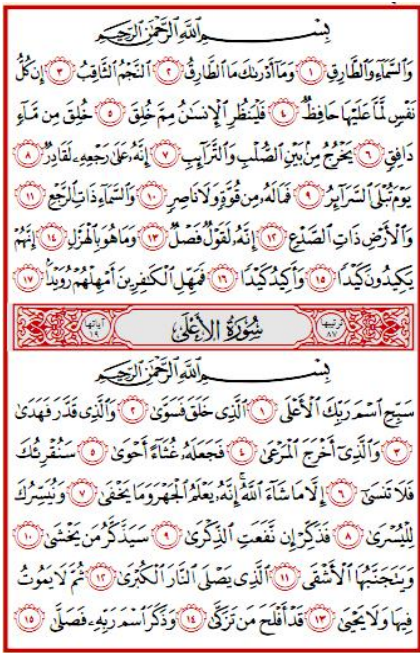 بِسْمِ اللَّهِ الرَّحْمَٰنِ الرَّحِيمِ
وَالسَّمَاءِ وَالطَّارِقِ ١ وَمَا أَدْرَاكَ مَا الطَّارِقُ ٢ النَّجْمُ الثَّاقِبُ ٣ إِن كُلُّ
نَفْسٍ لَّمَّا عَلَيْهَا حَافِظٌ ٤ فَلْيَنظُرِ الْإِنسَٰنُ مِمَّ خُلِقَ ٥ خُلِقَ مِن مَّاءٍ
دَافِقٍ ٦ يَخْرُجُ مِنْ بَيْنِ الصُّلْبِ وَالتَّرَائِبِ ٧ إِنَّهُ عَلَىٰ رَجْعِهِ لَقَادِرٌ ٨
يَوْمَ تُبْلَى السَّرَائِرُ ٩ فَمَا لَهُ مِن قُوَّةٍ وَلَا نَاصِرٍ ١٠ وَالسَّمَاءِ ذَاتِ الرَّجْعِ ١١
وَالْأَرْضِ ذَاتِ الصَّدْعِ ١٢ إِنَّهُ لَقَوْلٌ فَصْلٌ ١٣ وَمَا هُوَ بِالْهَزْلِ ١٤ إِنَّهُمْ
يَكِيدُونَ كَيْدًا ١٥ وَأَكِيدُ كَيْدًا ١٦ فَمَهِّلِ الْكَٰفِرِينَ أَمْهِلْهُمْ رُوَيْدًا ١٧
ترتيبها ٨٧ سُورَةُ الْأَعْلَىٰ آياتها ١٩
بِسْمِ اللَّهِ الرَّحْمَٰنِ الرَّحِيمِ
سَبِّحِ اسْمَ رَبِّكَ الْأَعْلَى ١ الَّذِي خَلَقَ فَسَوَّىٰ ٢ وَالَّذِي قَدَّرَ فَهَدَىٰ
٣ وَالَّذِي أَخْرَجَ الْمَرْعَىٰ ٤ فَجَعَلَهُ غُثَاءً أَحْوَىٰ ٥ سَنُقْرِئُكَ
فَلَا تَنسَىٰ ٦ إِلَّا مَا شَاءَ اللَّهُ إِنَّهُ يَعْلَمُ الْجَهْرَ وَمَا يَخْفَىٰ ٧ وَنُيَسِّرُكَ
لِلْيُسْرَىٰ ٨ فَذَكِّرْ إِن نَّفَعَتِ الذِّكْرَىٰ ٩ سَيَذَّكَّرُ مَن يَخْشَىٰ ١٠
وَيَتَجَنَّبُهَا الْأَشْقَى ١١ الَّذِي يَصْلَى النَّارَ الْكُبْرَىٰ ١٢ ثُمَّ لَا يَمُوتُ
فِيهَا وَلَا يَحْيَىٰ ١٣ قَدْ أَفْلَحَ مَن تَزَكَّىٰ ١٤ وَذَكَرَ اسْمَ رَبِّهِ فَصَلَّىٰ ١٥